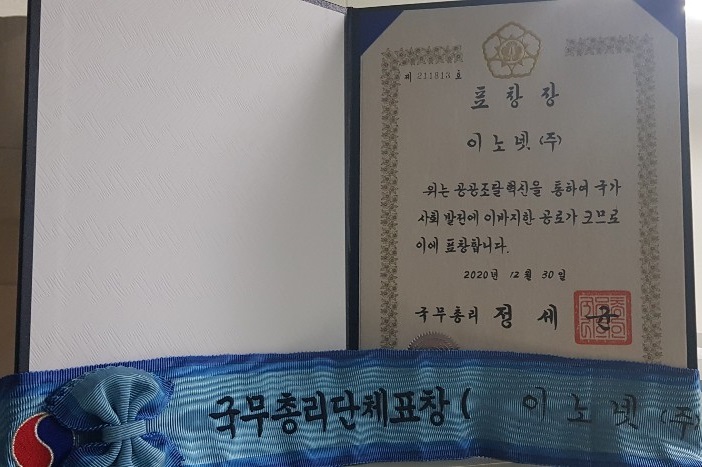 제 211813 호
표 창 장
이 노 넷 (주)
위는 공공조달 혁신을 통하여 국가
사회 발전에 이바지한 공로가 크므로
이에 표창합니다.
2020년 12월 30일
국무총리 정 세 균
국무총리단체표창 ( 이 노 넷 (주)